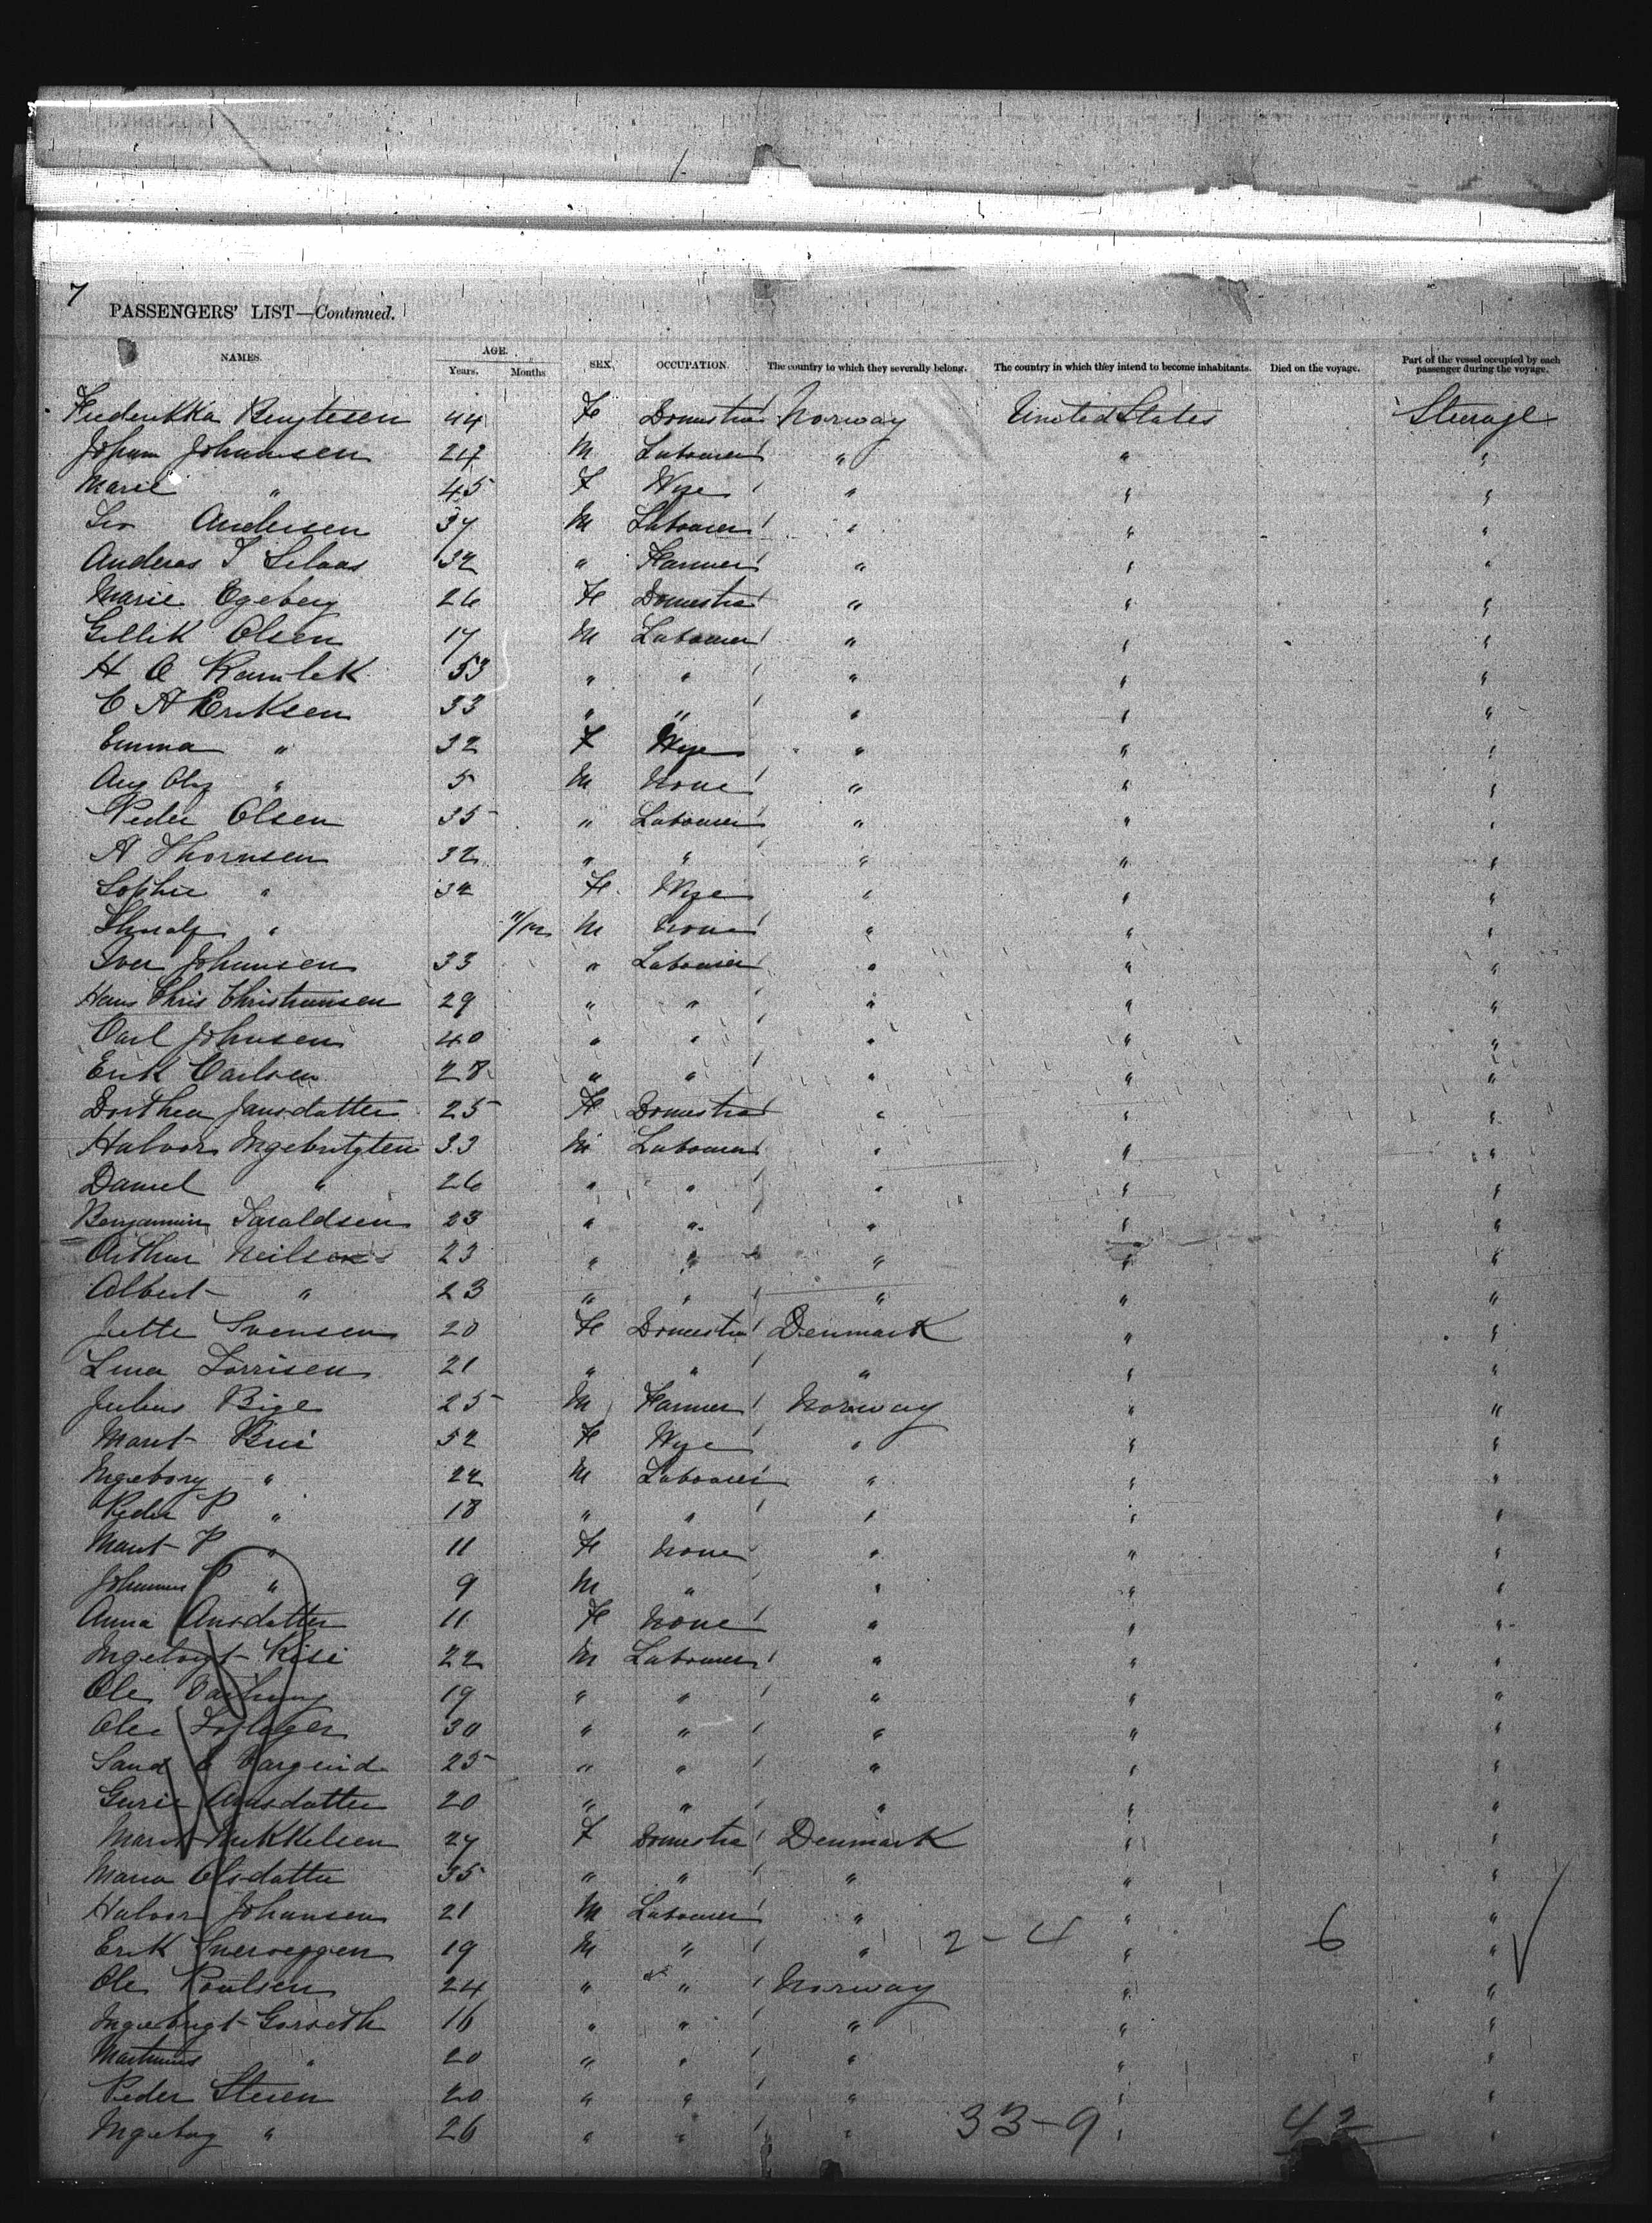 7
PASSENGERS' LIST—Continued.
NAMES. AGE. Years. Months SEX. OCCUPATION. The country to which they severally belong. The country in which they intend to become inhabitants. Died on the voyage. Part of the vessel occupied by each passenger during the voyage.
44 F Domestic Norway United States Steerage
Johan Johansen 24 M Labourer " " "
Marie " 45 F Wife " " "
Andersen 37 M Labourer " " "
Anderas 32 " Farmer " " "
Marie Egeberg 26 F Domestic " " "
Gullik Olsen 17 M Labourer " " "
H O 53 " " " " "
C A Eriksen 33 " " " " "
Emma " 32 F Wife " " "
Aug Olaf " 5 M None " " "
Peder Olsen 35 " Labourer " " "
A Thornsen 32 " " " " "
Sophie " 32 F Wife " " "
" 11/12 M None " " "
Iver Johansen 33 " Labourer " " "
Hans Chris Christiansen 29 " " " " "
Carl Johnsen 40 " " " " "
Erik Carlsen 28 " " " " "
Dorthea Jansdatter 25 F Domestic " " "
Halvor 33 M Labourer " " "
Daniel " 26 " " " " "
Benjamin Taraldsen 23 " " " " "
Arthur Neilson 23 " " " " "
Albert " 23 " " " " "
Jette Svensen 20 F Domestic Denmark " "
Lina 21 " " " " "
Julius Bige 25 M Farmer Norway " "
Marit 52 F Wife " " "
Ingeborg " 22 M Labourer " " "
Peder P " 18 " " " " "
Marit P " 11 F None " " "
Johannes P " 9 M " " " "
Anna Ansdatter 11 F None " " "
22 M Labourer " " "
Ole 19 " " " " "
Ole 30 " " " " "
25 " " " " "
Gurie Ansdatter 20 " " " " "
Marit Mikkelsen 27 F Domestic Denmark " "
Maria Olsdatter 35 " " " " "
Halvor Johansen 21 M Labourer " " "
Erik 19 M " " 2-4 " 6 "
Ole Poulsen 24 " " Norway " "
Ingebrigt Gorseth 16 " " " " "
Martinus " 20 " " " " "
Peder Steien 20 " " " " "
Ingeborg " 26 " " " 33-9 " 42 "